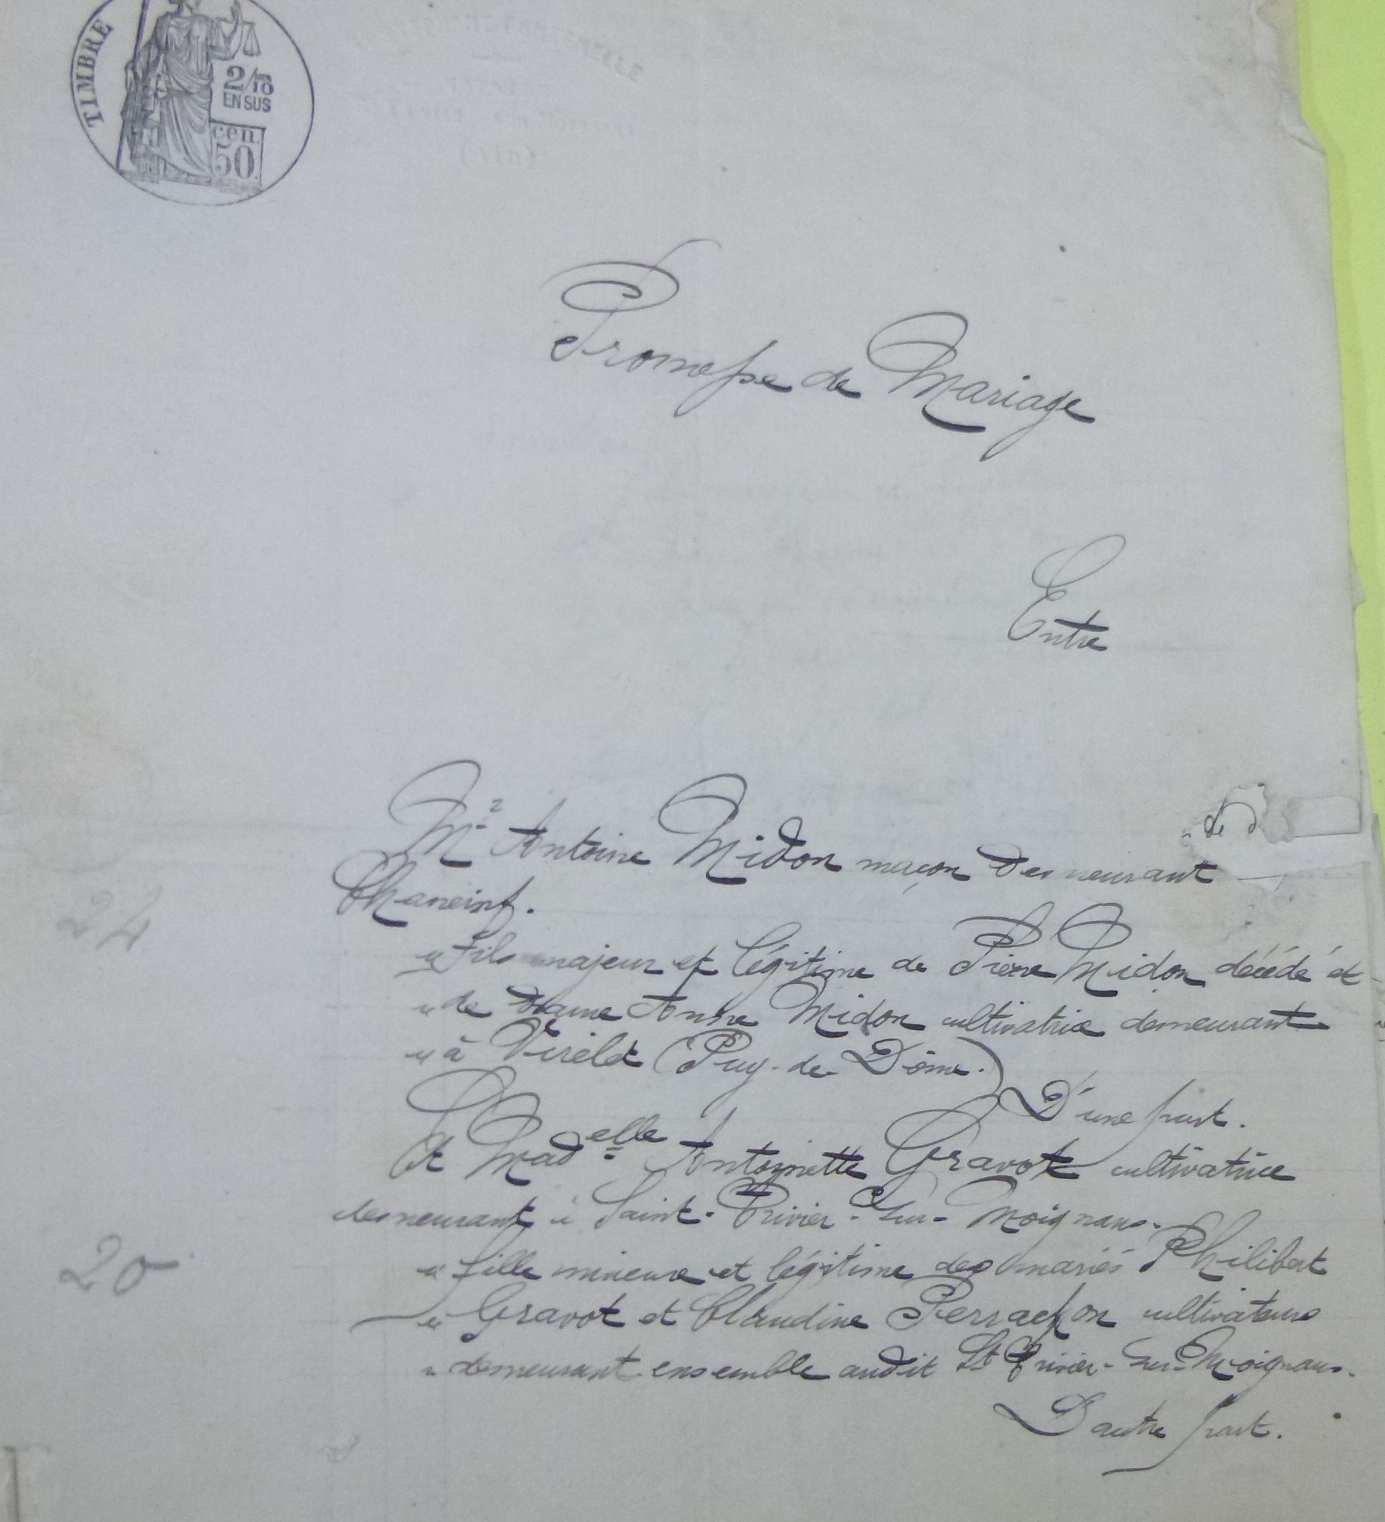 TIMBRE
2/10
EN SUS
cen.
50
Promesse de Mariage
Entre
Mr Antoine Midon maçon demeurant
Chaneins.
« Fils majeur et légitime de Pierre Midon décédé et
« de Dame Anne Midon cultivatrice demeurant
« à Virlet (Puy-de-Dôme.)
D'une part.
24
Et Madelle Antoinette Gravot cultivatrice
demeurant à Saint-Trivier-sur-Moignans.
« fille mineure et légitime des mariés Philibert
« Gravot et Claudine Perrachon cultivateurs
« demeurant ensemble audit St Trivier-sur-Moignans.
D'autre part.
20